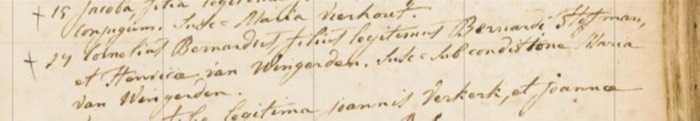 + 15 Jacoba, filia legitima
conjugum. Susc: Maria Verhout.
+ 27 Cornelius Bernardus, filius legitimus Bernardi Hofman,
et Henricæ van Wingerden. Susc: sub conditione Maria
van Wingerden.
filia legitima joannis Verkerk, et joannæ